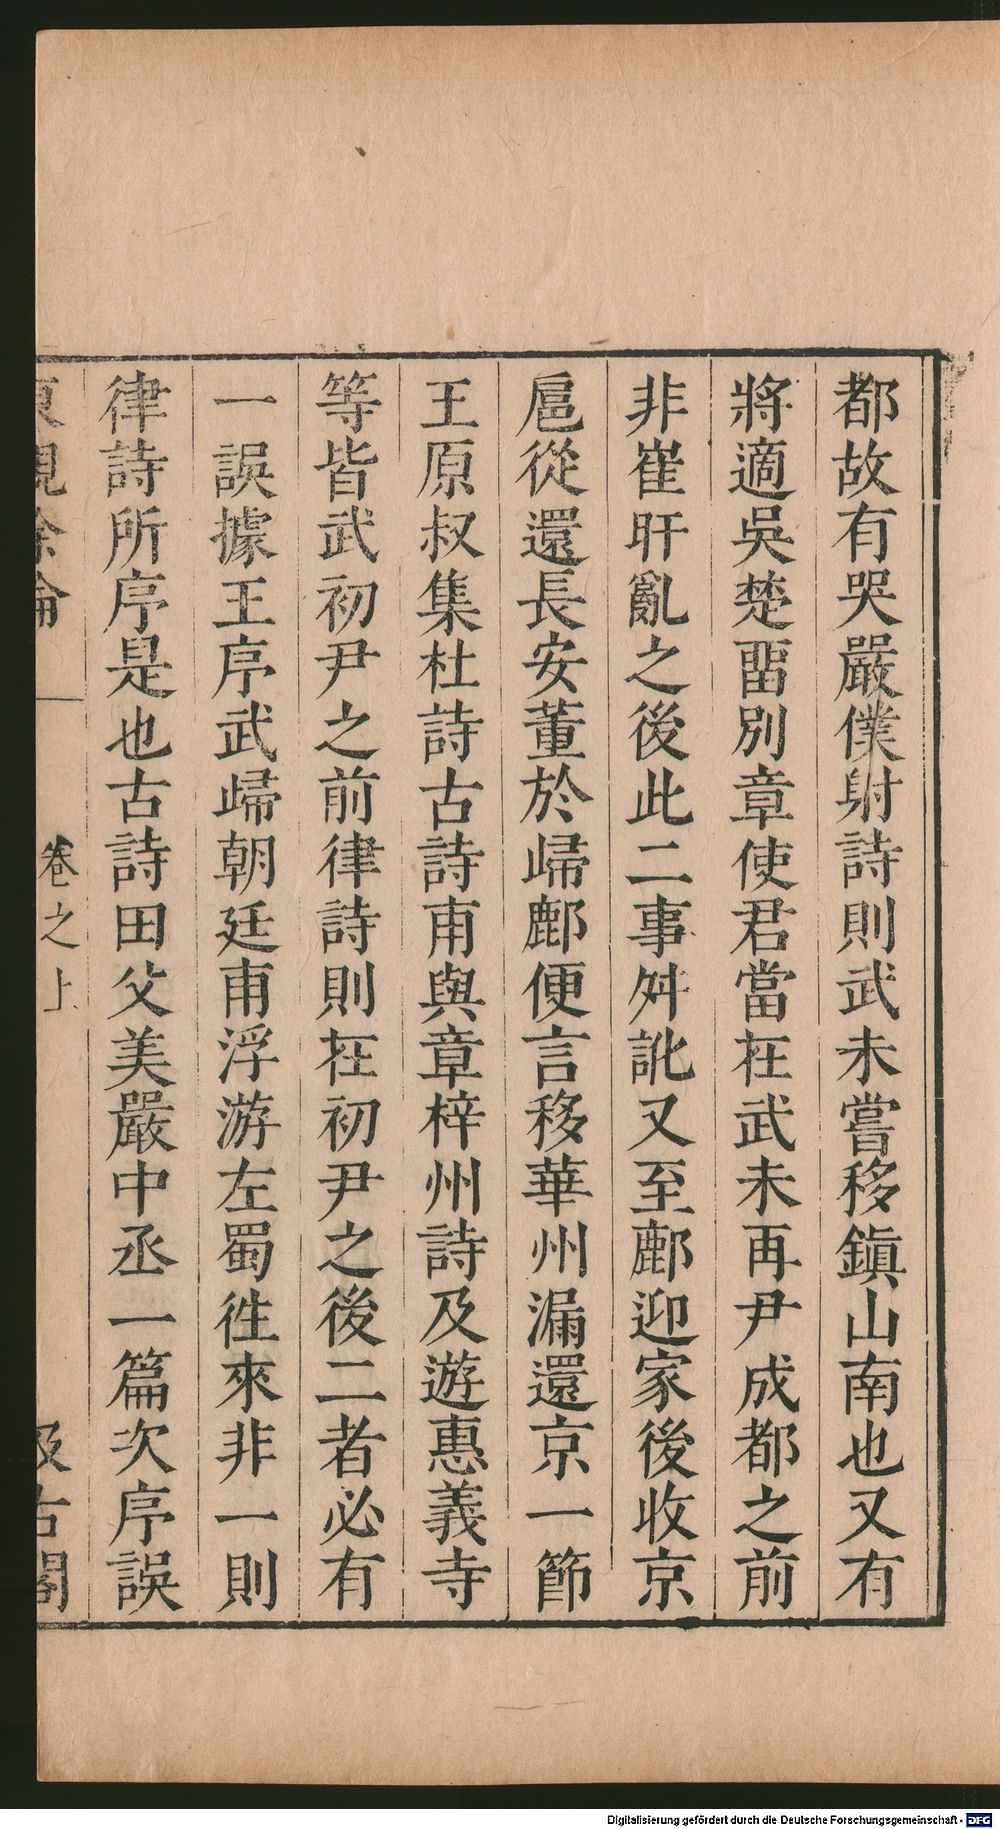 都故有哭嚴僕射詩則武未嘗移鎮山南也又有
將適吳楚畱別章使君當在武未再尹成都之前
非崔旰亂之後此二事舛訛又至鄜迎家後收京
扈從還長安董於歸鄜便言移華州漏還京一節
王原叔集杜詩古詩甫與章梓州詩及遊惠義寺
等皆武初尹之前律詩則在初尹之後二者必有
一誤據王序武歸朝廷甫浮游左蜀徃來非一則
律詩所序是也古詩田父美嚴中丞一篇次序誤
東觀余論 卷之上 汲古閣
Digitalisierung gefördert durch die Deutsche Forschungsgemeinschaft - DFG